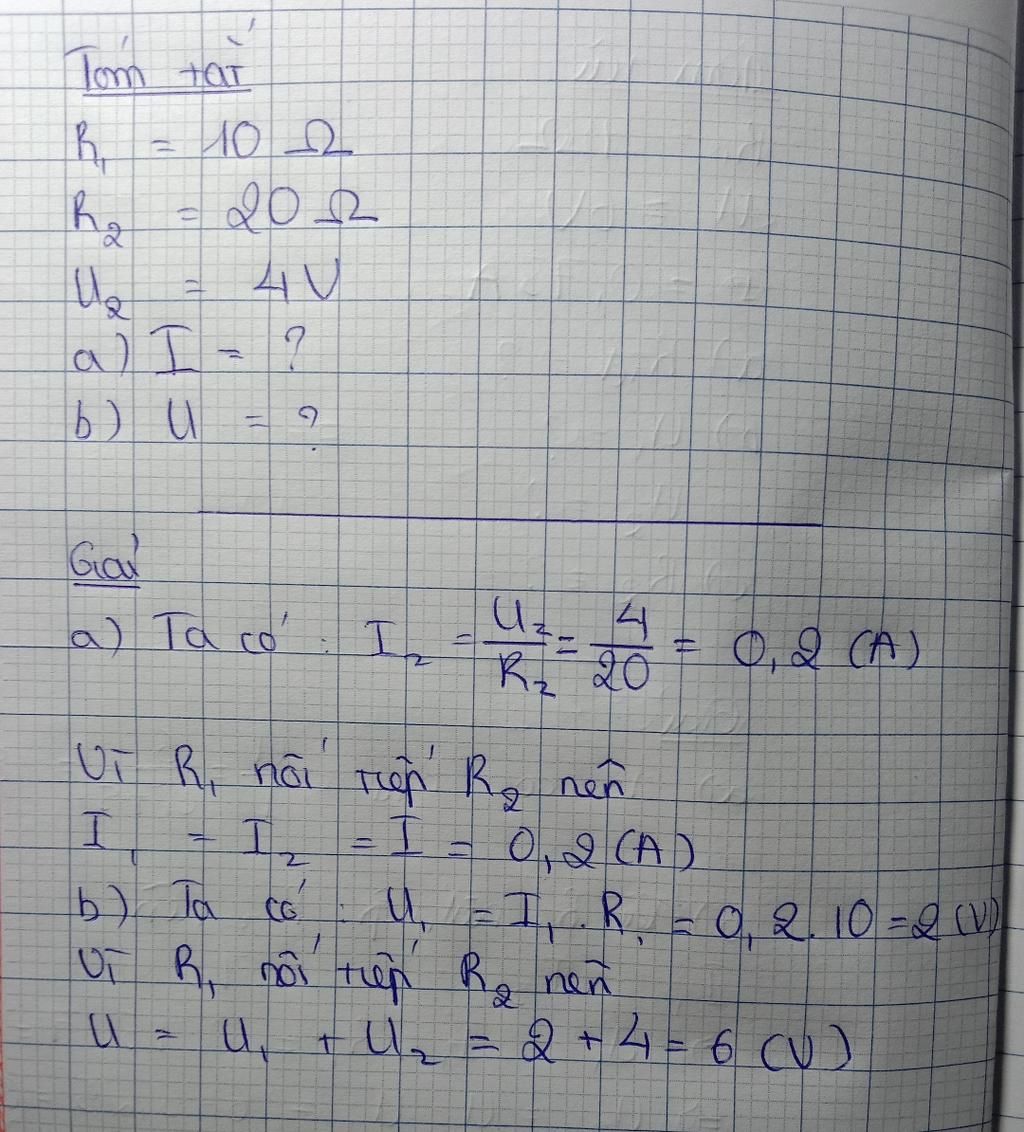 Tóm tắt
R₁ = 10 Ω
R₂ = 20 Ω
U₂ = 4V
a) I = ?
b) U = ?
Giải
a) Ta có : I₂ = U₂/R₂ = 4/20 = 0,2 (A)
Vì R₁ nối tiếp R₂ nên
I₁ = I₂ = I = 0,2 (A)
b) Ta có : U₁ = I₁ . R₁ = 0,2.10 = 2 (V)
Vì R₁ nối tiếp R₂ nên
U = U₁ + U₂ = 2 + 4 = 6 (V)